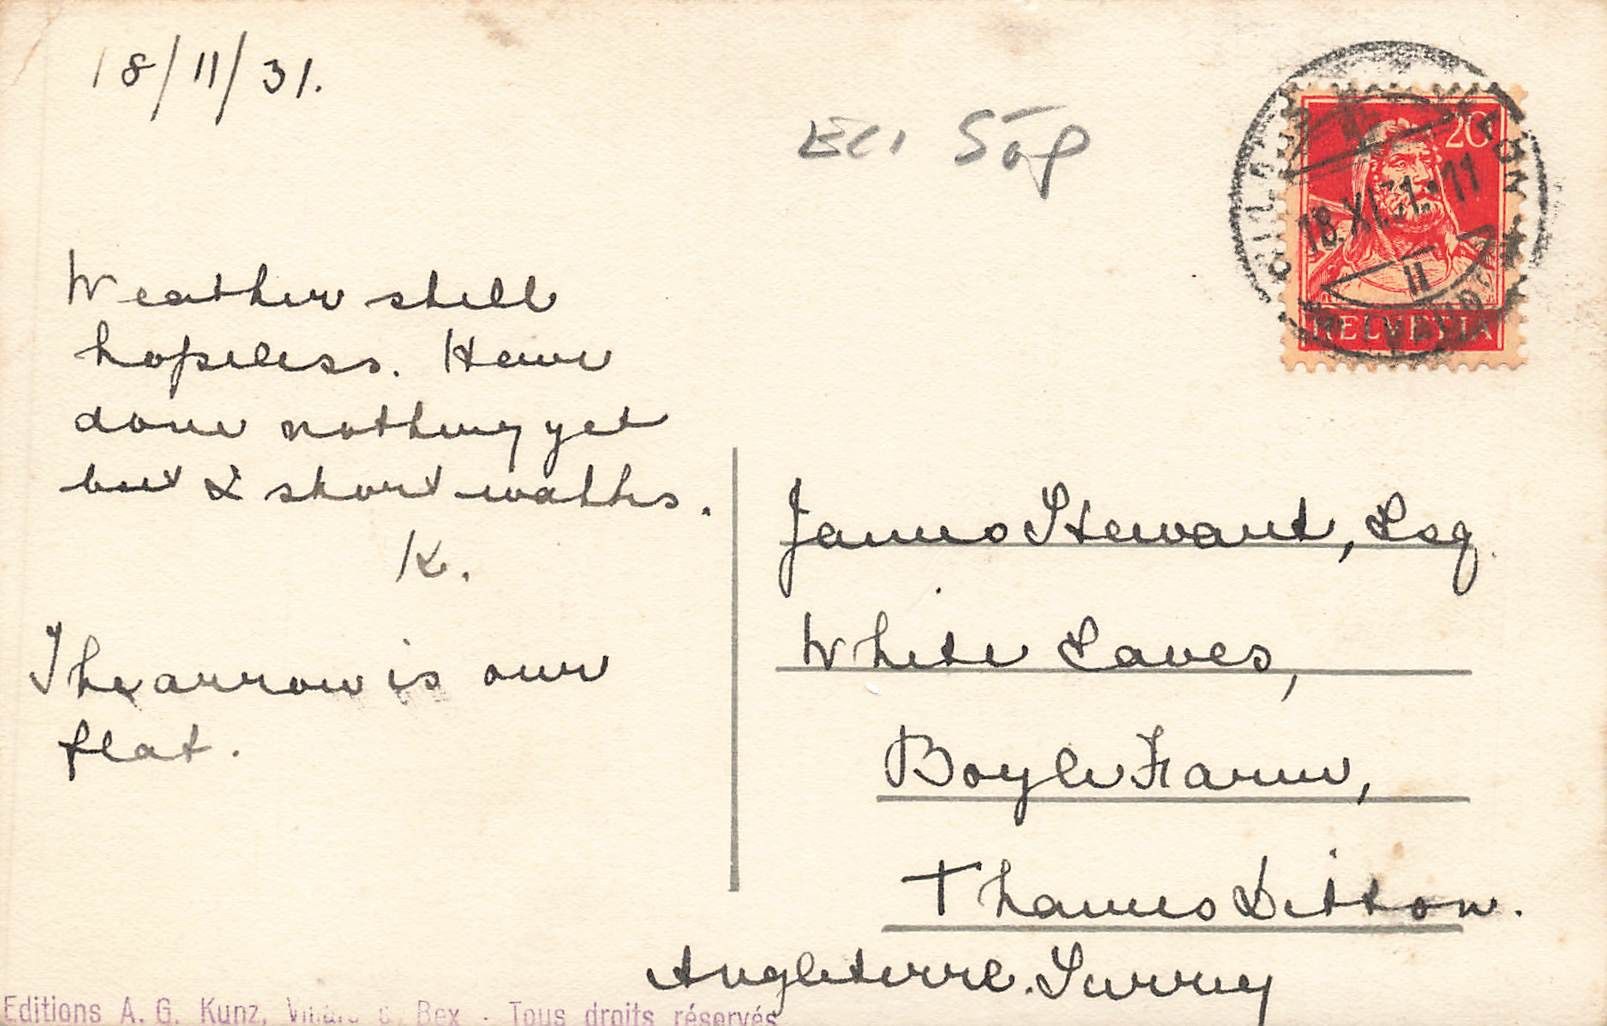 18/11/31.
50p
20
18.XI.31.-11
II
HELVETIA
Weather still
hopeless. Have
done nothing yet
but 2 short walks.
K.
The arrow is our
flat.
James Stewart, Esq.
White Eaves,
Boyle Farm,
Thames Ditton.
Angleterre. Surrey
Editions A. G. Kunz, Villars s. Bex - Tous droits réservés